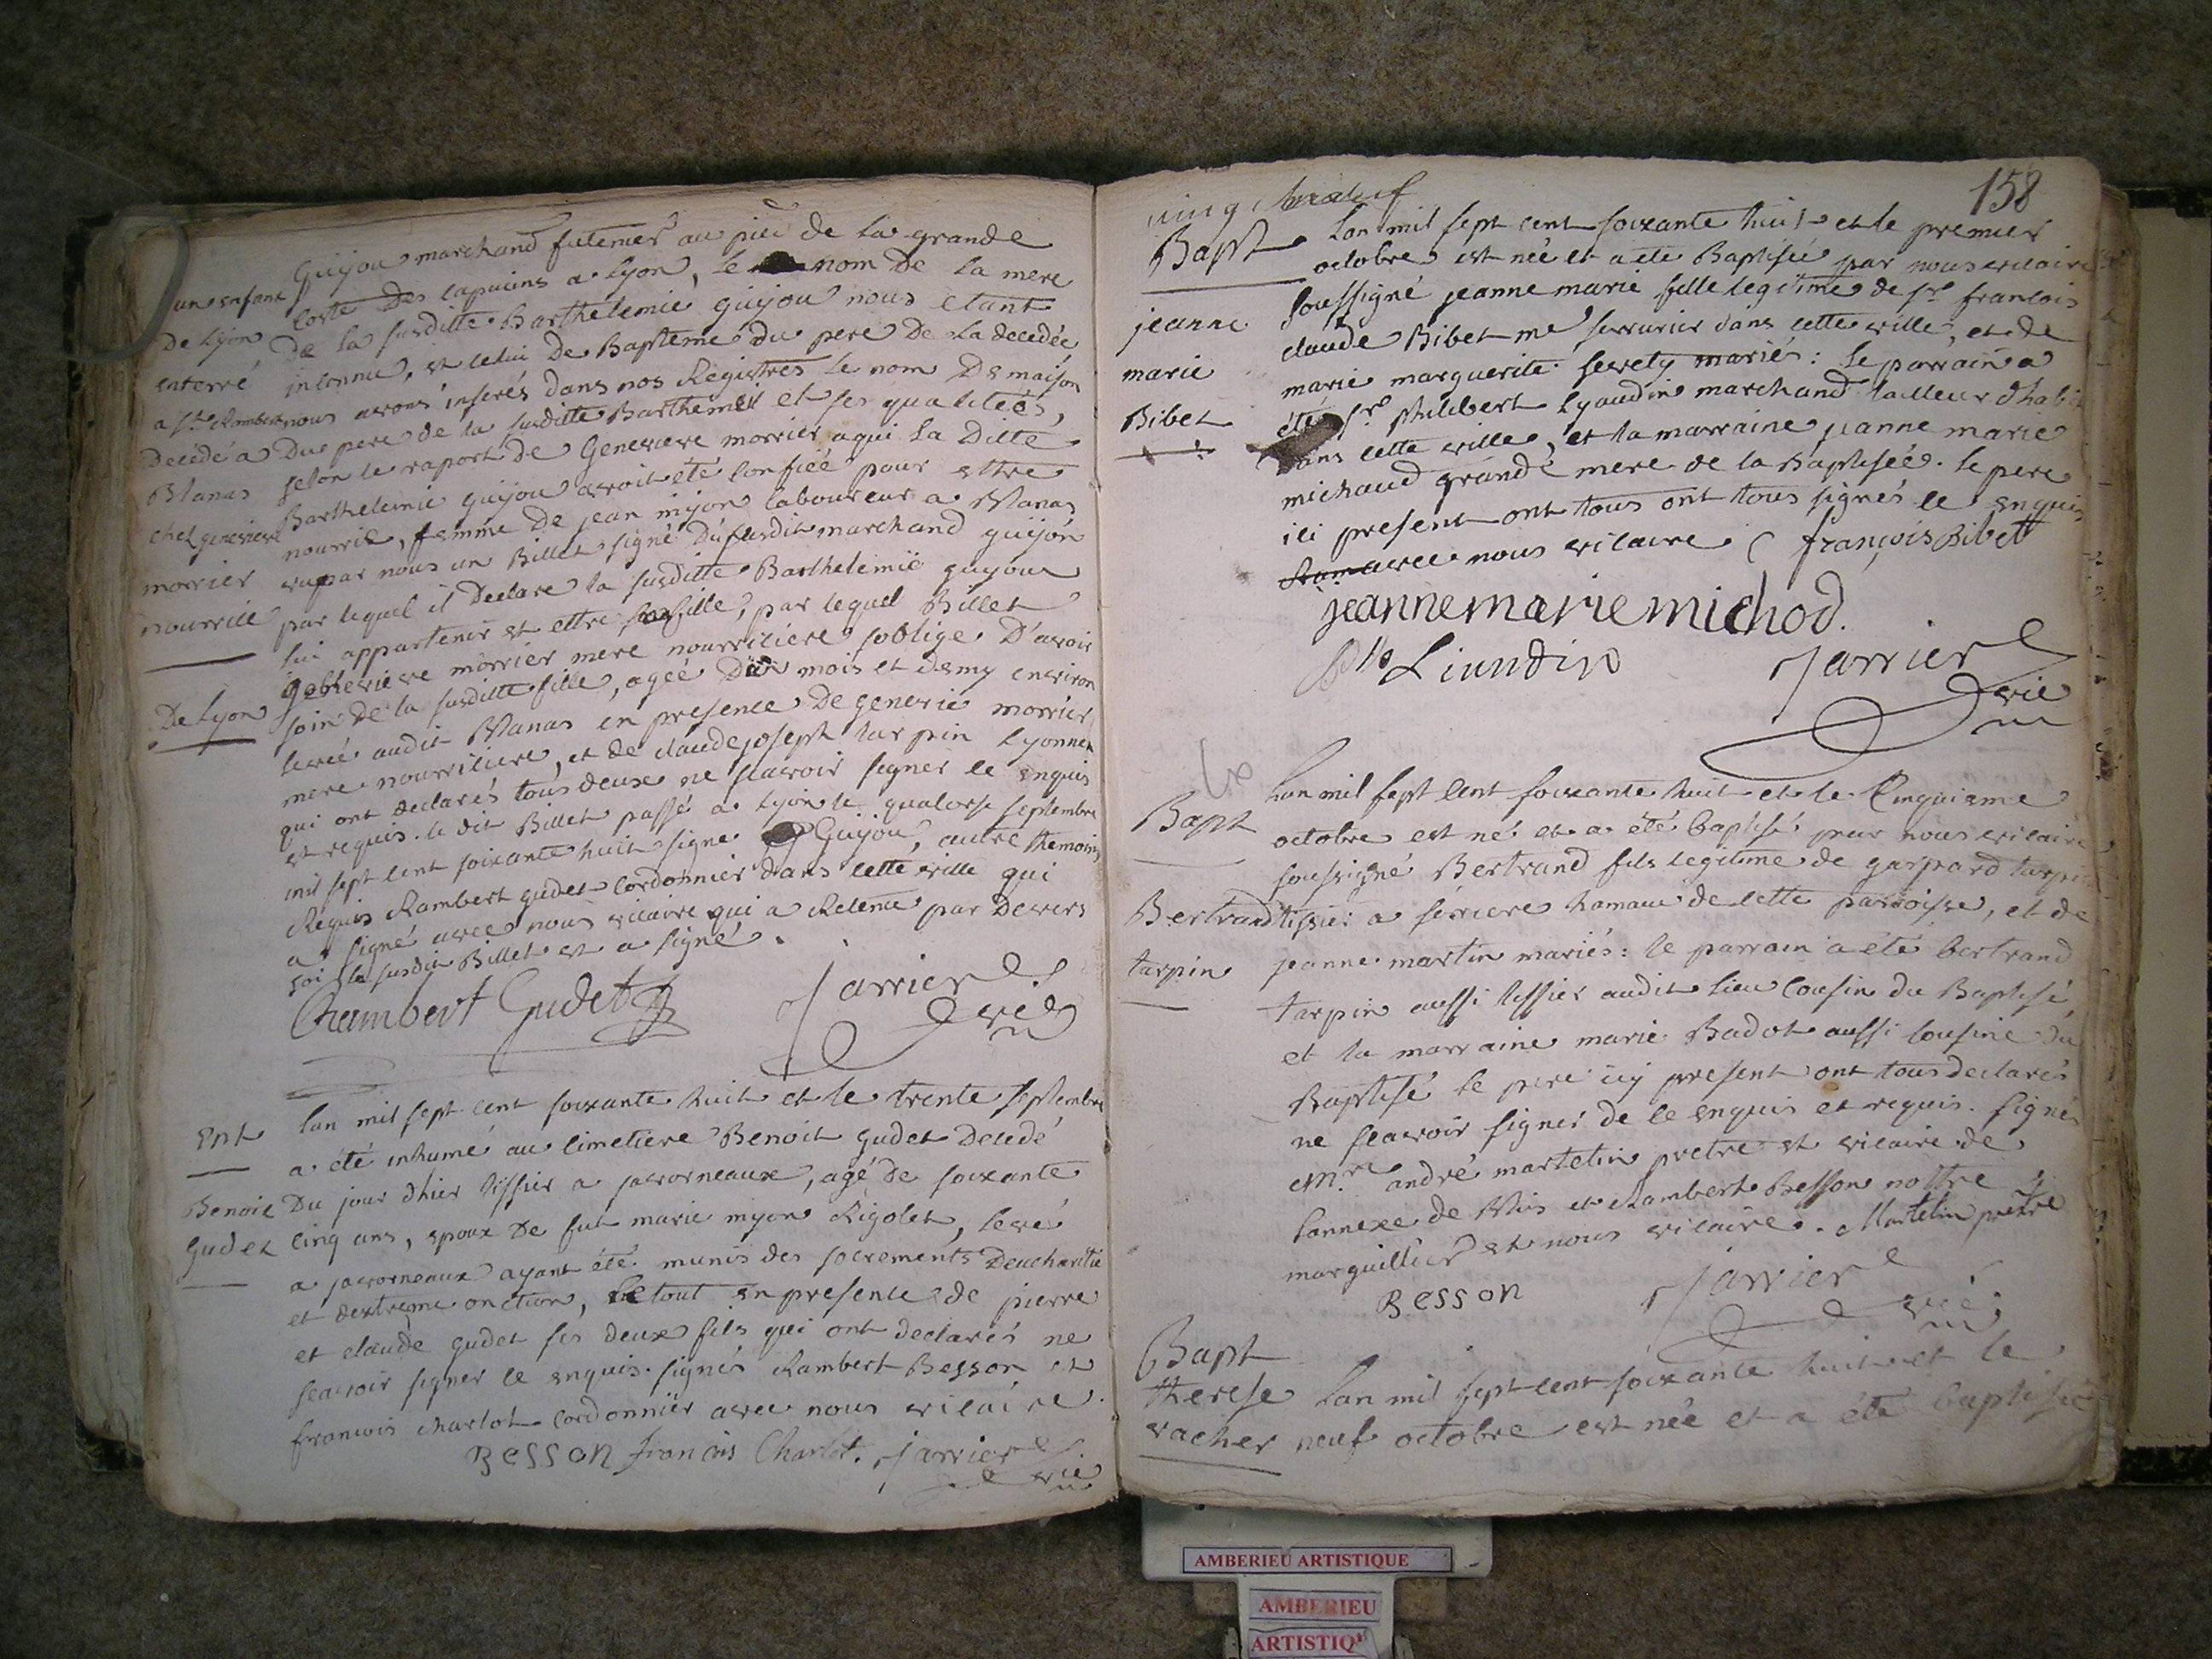 Guijou marchand futenier au pié de la grande
un enfant
coste des capucins a Lyon, le nom de la mere
De Lyon
de la susditte Barthelemie guijou nous etant
enterré
inconnu, et celui de Bapteme du pere de la decedée
a St. Rambert
nous avons inserés dans nos Registres le nom de maison
decedé a
Du pere de la susditte Barthemie et ses qualités,
Blanas
selon le raport de Genevieve morrier a qui la ditte
chez genevieve
Barthelemie guijou avoit été confiée pour ettre
morrier
nourrie, femme de jean mijon laboureur a Blanas
nourrice
vu par nous un Billet signé du susdit marchand guijon
par lequel il declare la susditte Barthelemie guyou
lui appartenir et ettre sa fille, par lequel Billet
genevieve morrier mere nourriciere soblige D'avoir
De Lyon
soin de la susditte fille, agée De mois et demy environ
levée audit Blanas en presence de genevie morrier
mere nourriciere, et de claude joseph tarpin Lyonnet
qui ont declarés tous deux ne scavoir signer ce enquis
et requis. le dit Billet passé a Lyon le quatorse septembre
mil sept cent soixante huit signé Guijou, autre themoins
Requis Rambert gudet cordonnier dans cette ville qui
a signé avec nous vicaire qui a Retenu par devers
soi le susdit Billet et a signé.
Rambert Gudet
Jarrier
vic
Ent
lan mil sept cent soixante huit et le trente septembre
a été inhumé au cimetiere Benoit gudet decedé
Benoit
Du jour dhier tissier a javorneaux, agé de soixante
gudet
cinq ans, epoux de fut marie myon Rigolet, levé
a javorneaux ayant été munis des sacrements deucharitie
et dextreme onction, le tout en presence de pierre
et claude gudet ses deux fils qui ont declarés ne
scavoir signer ce enquis. signés Rambert Besson et
francois charlot cordonnier avec nous vicaire.
Besson francois Charlot. Jarrier
vic
158
Bapt
lan mil sept cent soixante huit et le premier
octobre est née et a été Baptisée par nous vicaire
soussigné jeanne marie fille legitime de sr francois
jeanne
claude Bibet me serrurier dans cette ville, et de
marie
marie marguerite secrety mariés: le parrain a
Bibet
été sr. philibert Lyaudin marchand tailleur dhabit
dans cette ville, et la marraine jeanne marie
michaud grande mere de la Baptisée. le pere
ici present ont tous ont tous signés ce enquis
avec nous vicaire francois Bibet
jeanne marie michod.
Liundin
Jarrier
vic
Bapt
lan mil sept cent soixante huit et le cinquieme
octobre est né et a été baptisé par nous vicaire
soussigné Bertrand fils legitime de gaspard tarpin
Bertrand
tissier a serriere hamau de cette parroisse, et de
tarpin
jeanne martin mariés: le parrain a été bertrand
tarpin aussi tissier audit lieu cousin du Baptisé
et la marraine marie Badot aussi cousine du
Baptisé le pere icy present ont tous declarés
ne scavoir signer de ce enquis et requis. signés
Mre andré martelin pretre et vicaire de
lannexe de et Rambert Besson nottre
marguillier et nous vicaire. Martelin prêtre
Besson
Jarrier
vic
Bapt
therese
lan mil sept cent soixante huit et le
vacher
neuf octobre est née et a été baptisée
AMBERIEU ARTISTIQUE
AMBERIEU
ARTISTIQ